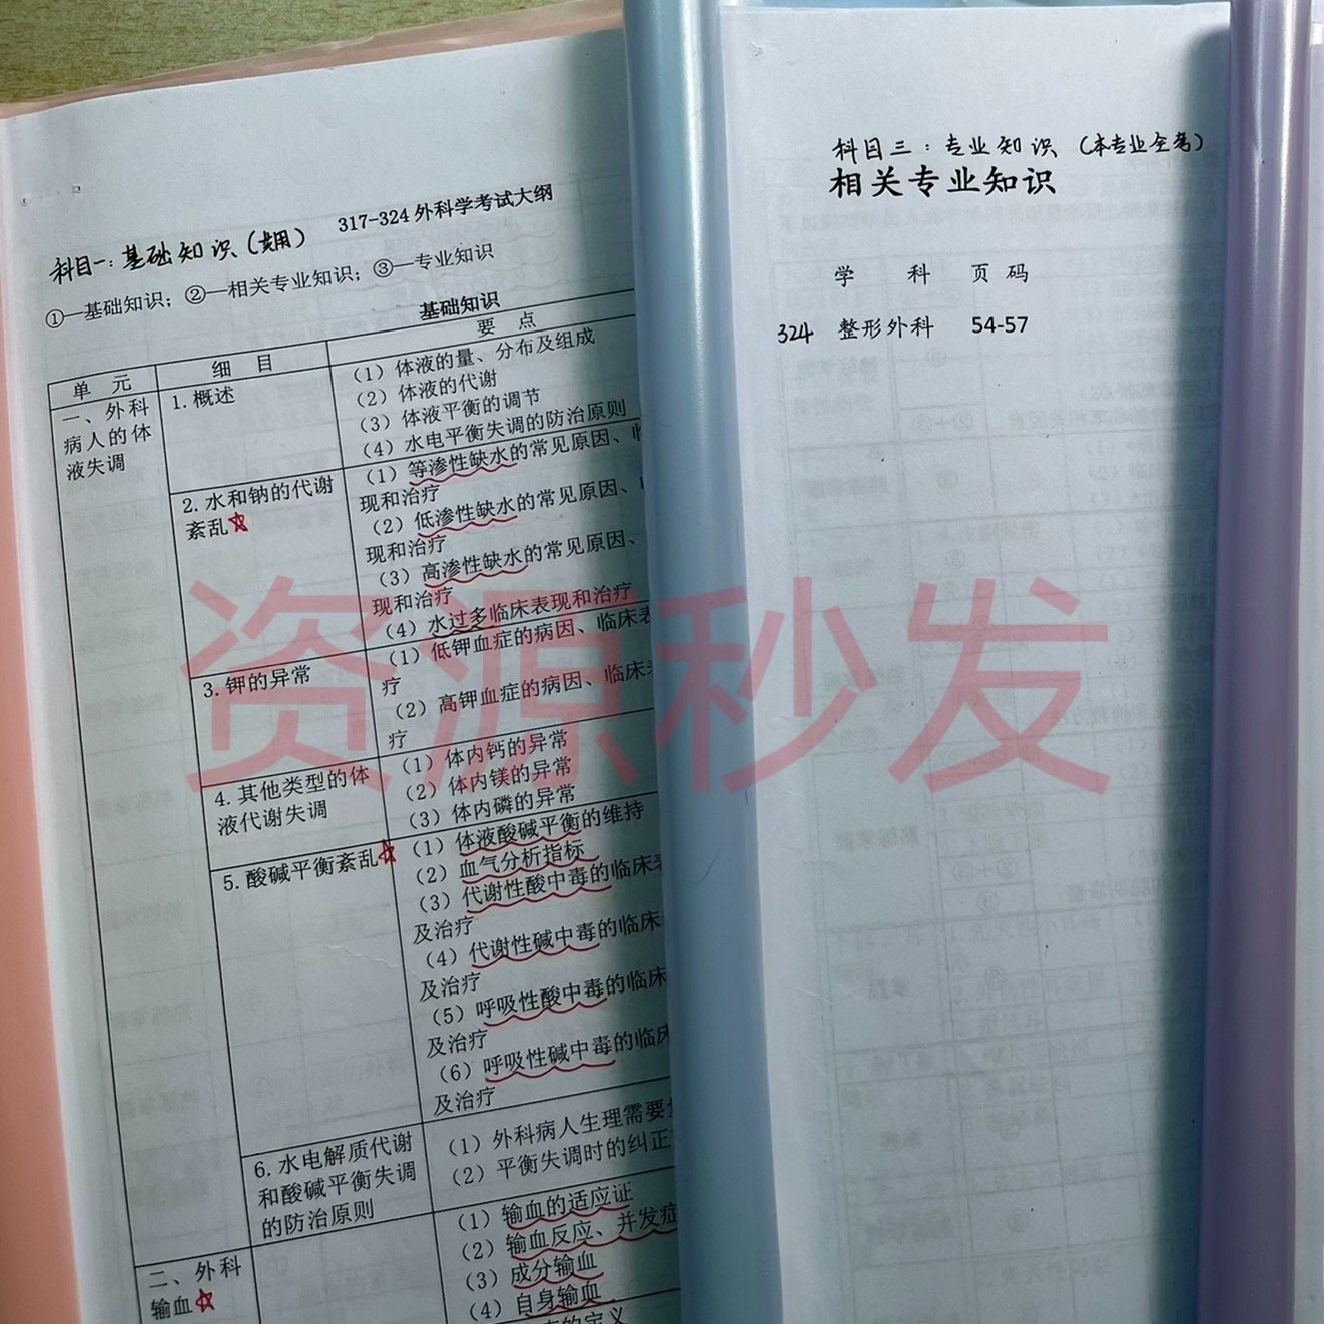 317-324 外科学考试大纲
科目一：基础知识（共用）
①—基础知识；②—相关专业知识；③—专业知识
基础知识
单 元
细 目
要 点
一、外科
病人的体
液失调
1. 概述
（1）体液的量、分布及组成
（2）体液的代谢
（3）体液平衡的调节
（4）水电平衡失调的防治原则
2. 水和钠的代谢
紊乱
（1）等渗性缺水的常见原因、临
现和治疗
（2）低渗性缺水的常见原因、
现和治疗
（3）高渗性缺水的常见原因、
现和治疗
（4）水过多临床表现和治疗
3. 钾的异常
（1）低钾血症的病因、临床表
疗
（2）高钾血症的病因、临床表
疗
4. 其他类型的体
液代谢失调
（1）体内钙的异常
（2）体内镁的异常
（3）体内磷的异常
5. 酸碱平衡紊乱
（1）体液酸碱平衡的维持
（2）血气分析指标
（3）代谢性酸中毒的临床表
及治疗
（4）代谢性碱中毒的临床
及治疗
（5）呼吸性酸中毒的临床
及治疗
（6）呼吸性碱中毒的临床
及治疗
6. 水电解质代谢
和酸碱平衡失调
的防治原则
（1）外科病人生理需要
（2）平衡失调时的纠正
二、外科
输血
（1）输血的适应证
（2）输血反应、并发症
（3）成分输血
（4）自身输血
的定义
科目三：专业知识（本专业全考）
相关专业知识
学 科 页 码
324 整形外科 54-57
资源秒发